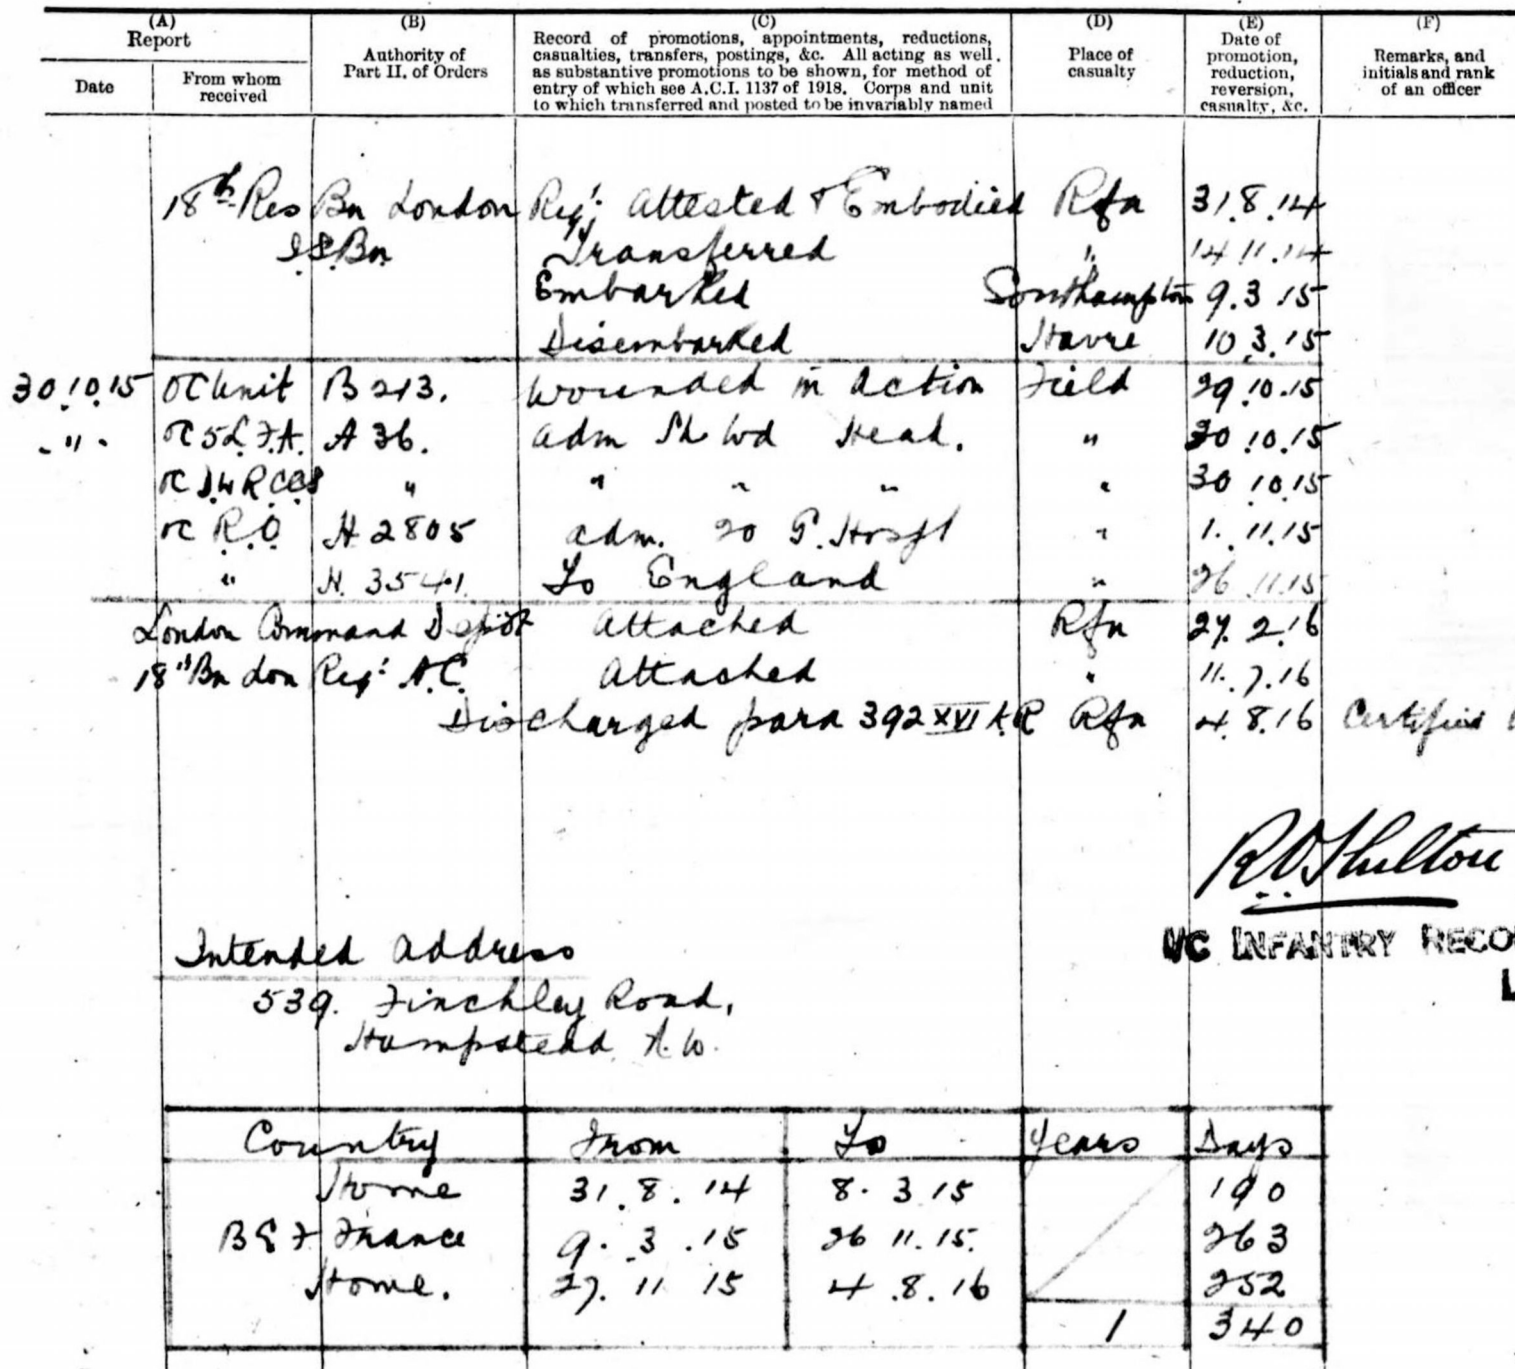 (A) (B) (C) (D) (E) (F)
Report
Date
From whom received
Authority of Part II. of Orders
Record of promotions, appointments, reductions,
casualties, transfers, postings, &c. All acting as well.
as substantive promotions to be shown, for method of
entry of which see A.C.I. 1137 of 1918. Corps and unit
to which transferred and posted to be invariably named
Place of casualty
Date of promotion, reduction, reversion, casualty, &c.
Remarks, and initials and rank of an officer
18th Res Bn London Regt; Attested & Embodied Rfn 31.8.14
Bn Transferred " 14.11.14
Embarked Southampton 9.3.15
Disembarked Havre 10.3.15
30.10.15 OC Unit B 213. Wounded in Action Field 29.10.15
" OC 5 L.F.A. A 36. adm Sh Wd Head. " 30.10.15
OC " " " " " 30.10.15
OC R.O. H 2805 adm. 20 G. Hospl " 1.11.15
" H. 3541. To England " 26.11.15
London Command Depot Attached Rfn 27.2.16
18th Bn Lon Regt A.C. Attached " 11.7.16
Discharged para 392 XVI K.R Rfn 4.8.16 Certified
I/C INFANTRY RECO
L
Intended Address
539. Finchley Road,
Hampstead N.W.
Country From To Years Days
Home 31.8.14 8.3.15 190
B E F France 9.3.15 26.11.15. 263
Home. 27.11.15 4.8.16 252
1 340